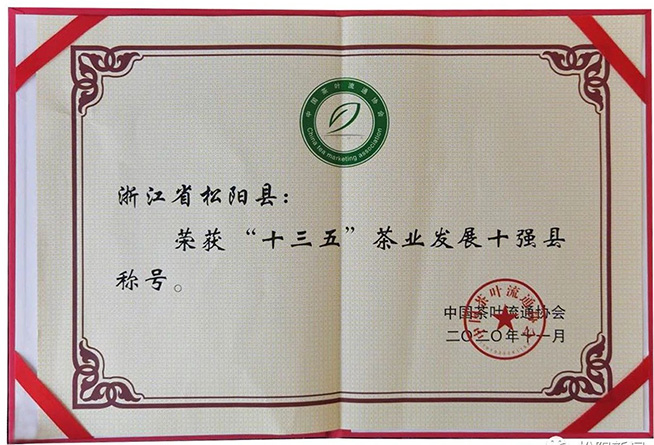 中国茶叶流通协会
China tea marketing association
浙江省松阳县：
荣获“十三五”茶业发展十强县
称号。
中国茶叶流通协会
二〇二〇年十一月
中国茶叶流通协会